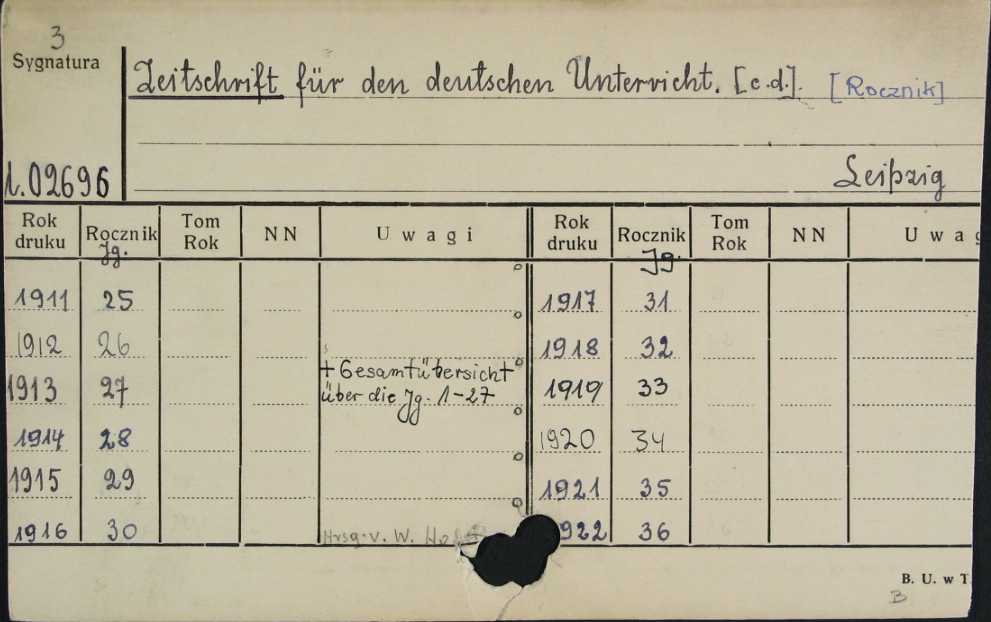 3
Sygnatura
Zeitschrift für den deutschen Unterricht. [c.d.]. [Rocznik]
1.02696
Leipzig
Rok druku Rocznik Jg. Tom Rok NN Uwagi Rok druku Rocznik Jg. Tom Rok NN Uwag
1911 25 1917 31
1912 26 1918 32
1913 27 + Gesamtübersicht über die Jg. 1-27 1919 33
1914 28 1920 34
1915 29 1921 35
1916 30 Hrsg. v. W. 922 36
B. U. w T.
B